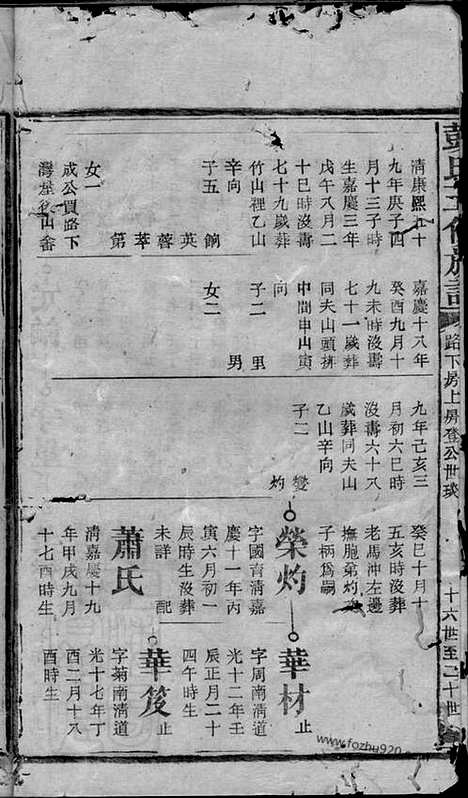 路下房上屏登公世琰
十六世至二十世
清康熙五十
九年庚子四
月十三子時
生嘉慶三年
戊午八月二
十巳時沒壽
七十九歲葬
竹山裡乙山
辛向
子五 餉
英
蓉
萃
第
女一
成公賈路下
灣星後山畬
嘉慶十八年
癸酉九月十
九未時沒壽
七十一歲葬
同夫山頭拼
中間申山寅
向
子二 里
男
女二
九年己亥三
月初六巳時
沒壽六十八
歲葬同夫山
乙山辛向
子二 變
灼
癸巳十月十
五亥時沒葬
老馬冲左邊
撫胞弟灼
子柄爲嗣
榮灼
字國育清嘉
慶十一年丙
寅六月初一
辰時生沒葬
未詳 配
蕭氏
清嘉慶十九
年甲戌九月
十七酉時生
華材 止
字周南清道
光十二年壬
辰正月二十
四午時生
華笈 止
字菊南清道
光十七年丁
酉二月十八
酉時生
www.fozhu920.com